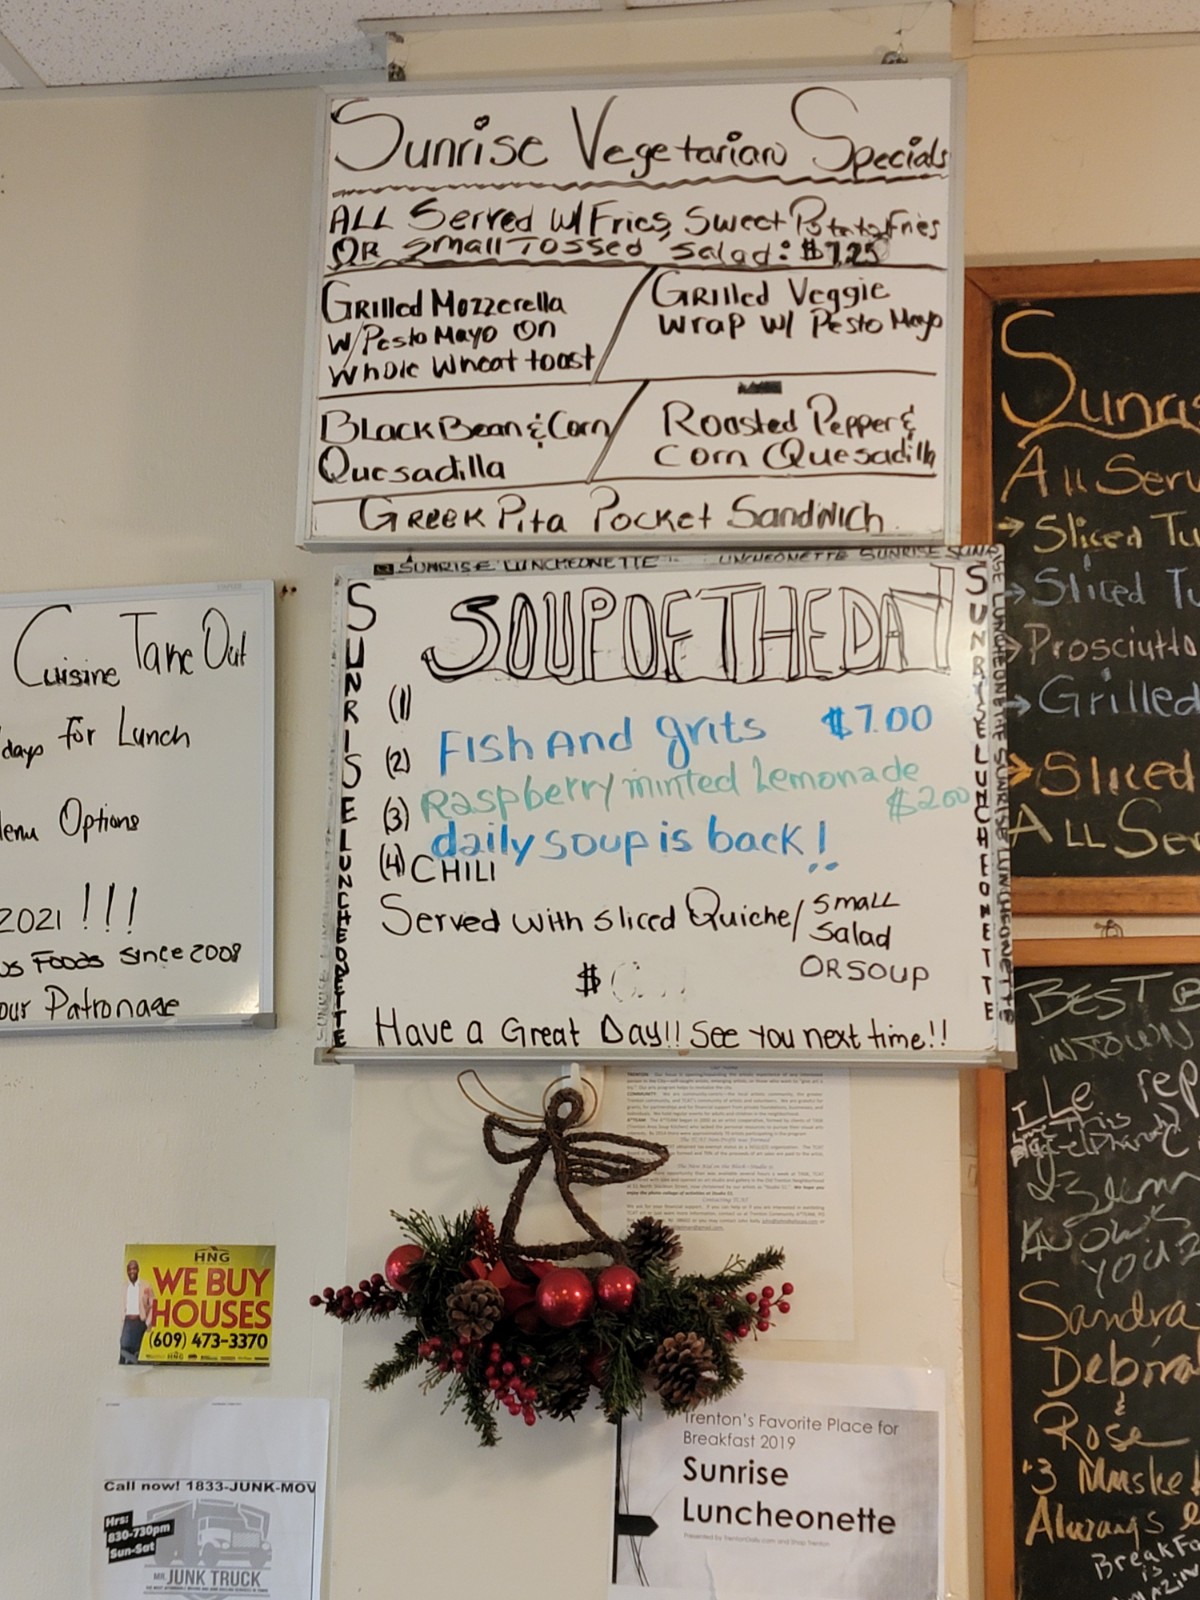 Sunrise Vegetarian Specials
ALL Served w/ Fries, Sweet Potato Fries
OR Small Tossed Salad: $7.25
Grilled Mozzerella
w/Pesto Mayo On
Whole Wheat toast
Grilled Veggie
Wrap w/ Pesto Mayo
Black Bean & Corn
Quesadilla
Roasted Pepper &
Corn Quesadilla
Greek Pita Pocket Sandwich
SUNRISE LUNCHEONETTE
LUNCHEONETTE SUNRISE SUN
SUNRISE LUNCHEONETTE
SOUP OF THE DAY
(1)
Fish And grits $7.00
(2)
Raspberry minted Lemonade
$2.00
(3)
daily soup is back!!
(4) CHILI
Served with sliced Quiche/ Small
Salad
OR SOUP
$
Have a Great Day!! See you next time!!
SUNRISE LUNCHEONETTE
Cuisine Take Out
days for Lunch
enu Options
2021 !!!
us Foods Since 2008
our Patronage
Sunris
All Serv
→ Sliced Tu
→ Sliced Tu
→ Prosciutto
→ Grilled
→ Sliced
ALL Se
BEST B
IN TOWN
Sandra
Debora
&
Rose
3 Musket
Always
BreakFa
is
Amazin
HNG
WE BUY
HOUSES
(609) 473-3370
Call now! 1833-JUNK-MOV
Hrs:
830-730pm
Sun-Sat
MR. JUNK TRUCK
Trenton's Favorite Place for
Breakfast 2019
Sunrise
Luncheonette
Presented by TrentonDaily.com and Shop Trenton